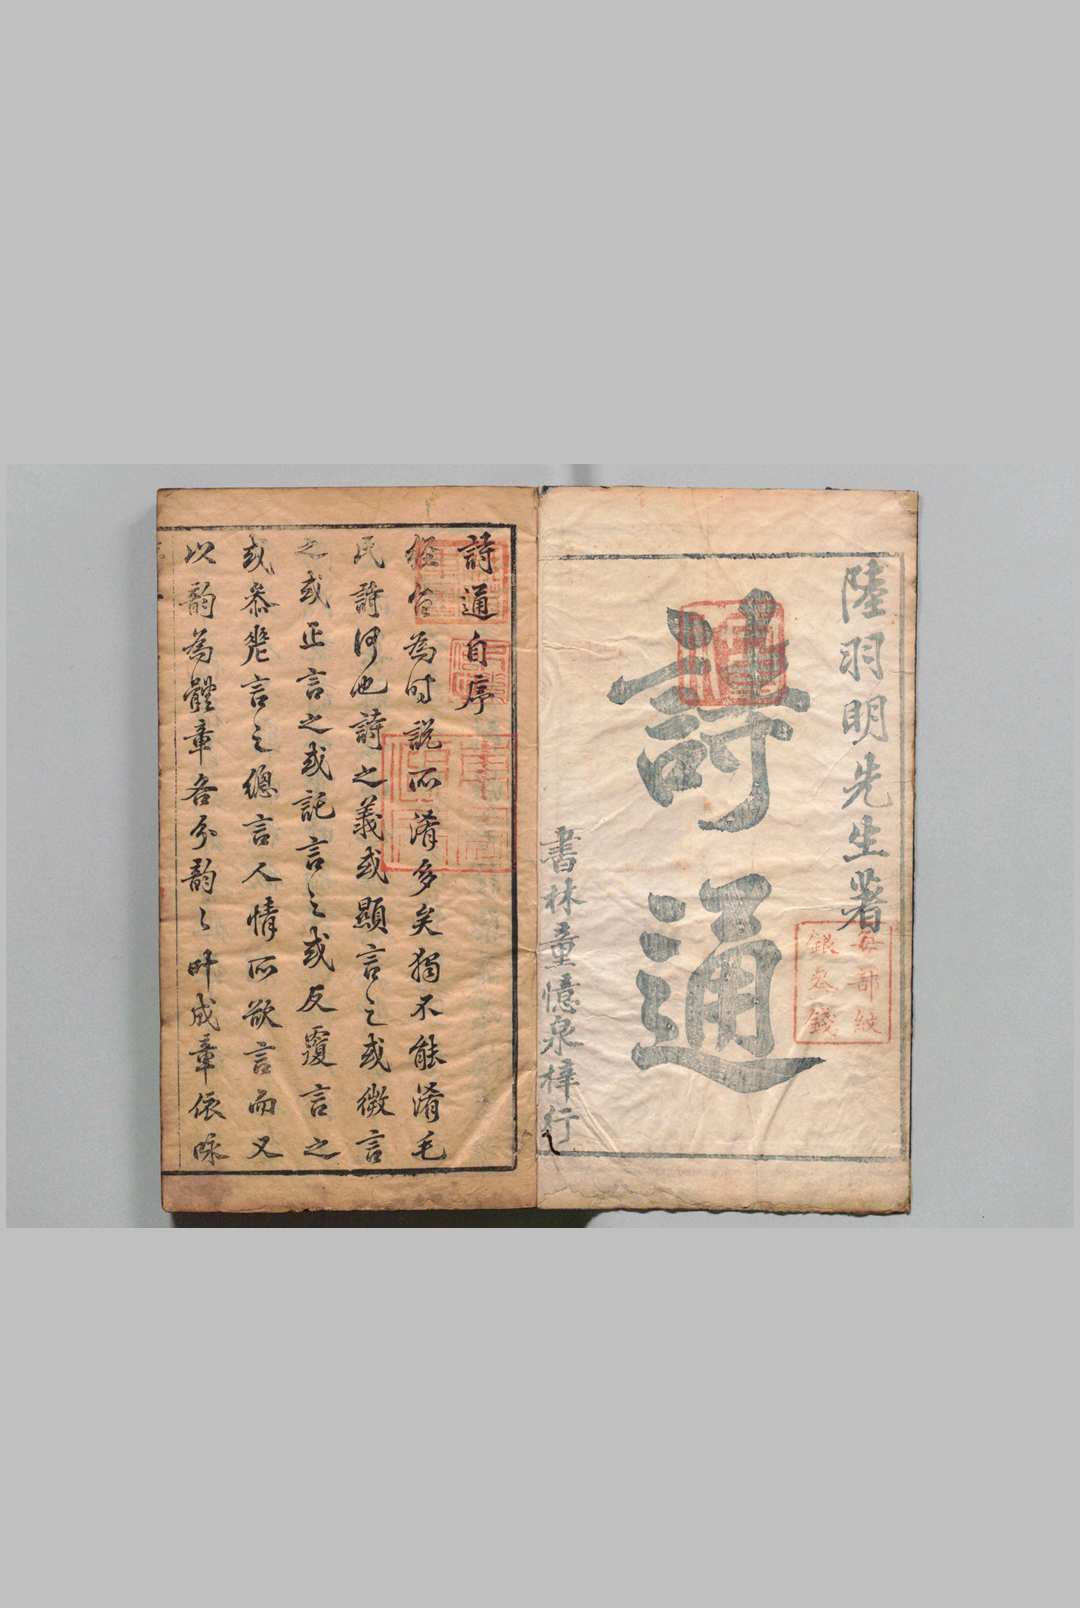 陸羽明先生著
詩通
書林童憶泉梓行
每部紋
銀叁錢
詩通自序
經旨為時說所淆多矣獨不能淆毛
民詩何也詩之義或顯言之或微言
之或正言之或託言之或反覆言之
或叅差言之總言人情所欲言而又
以韵為體章各分韵〻叶成章依咏